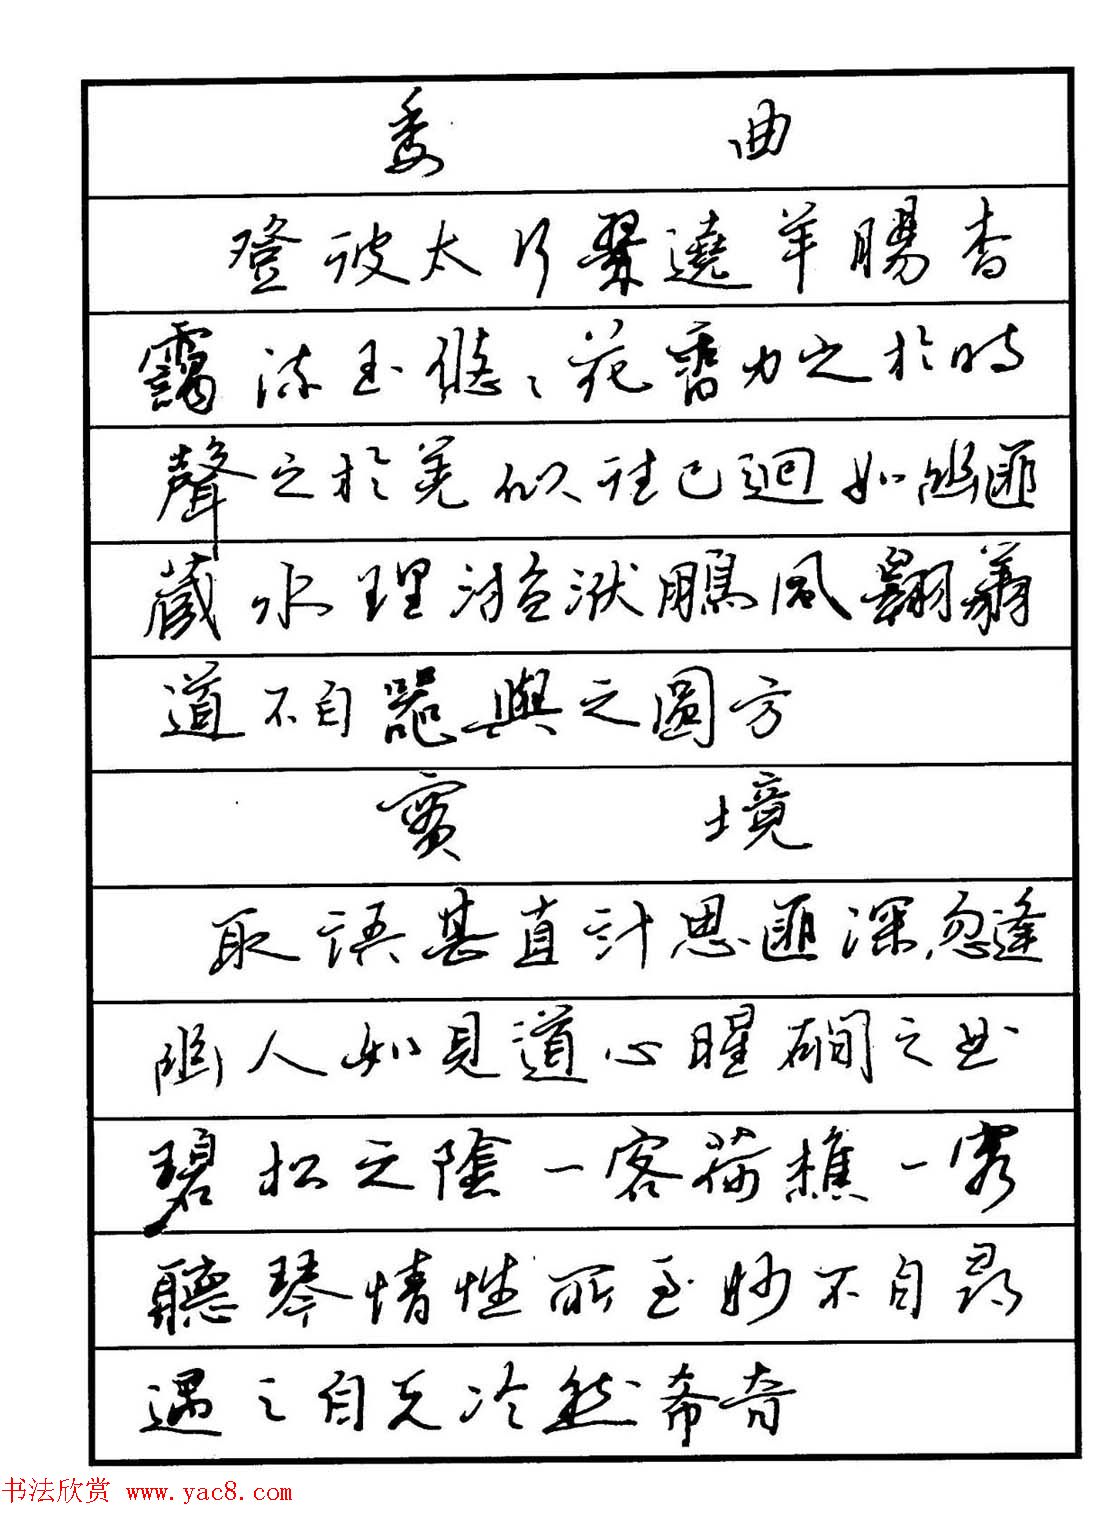 委曲
登彼太行翠遶羊腸杳
靄流玉悠〻花香力之於時
聲之於羌似往已迴如幽匪
藏水理漩洑鵬風翱翔
道不自器與之圓方
實境
取語甚直計思匪深忽逢
幽人如見道心暒磵之曲
碧松之陰一客荷樵一客
聽琴情性所至妙不自尋
遇之自天泠然希音
书法欣赏 www.yac8.com